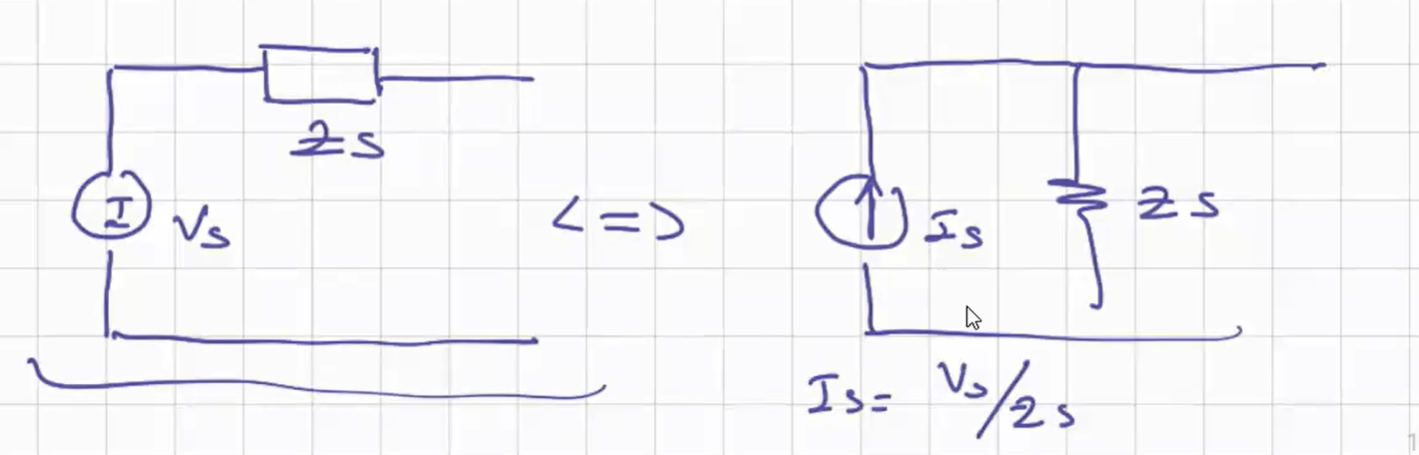 Zs
I Vs
<=>
Is Zs
Is= Vs/Zs
1